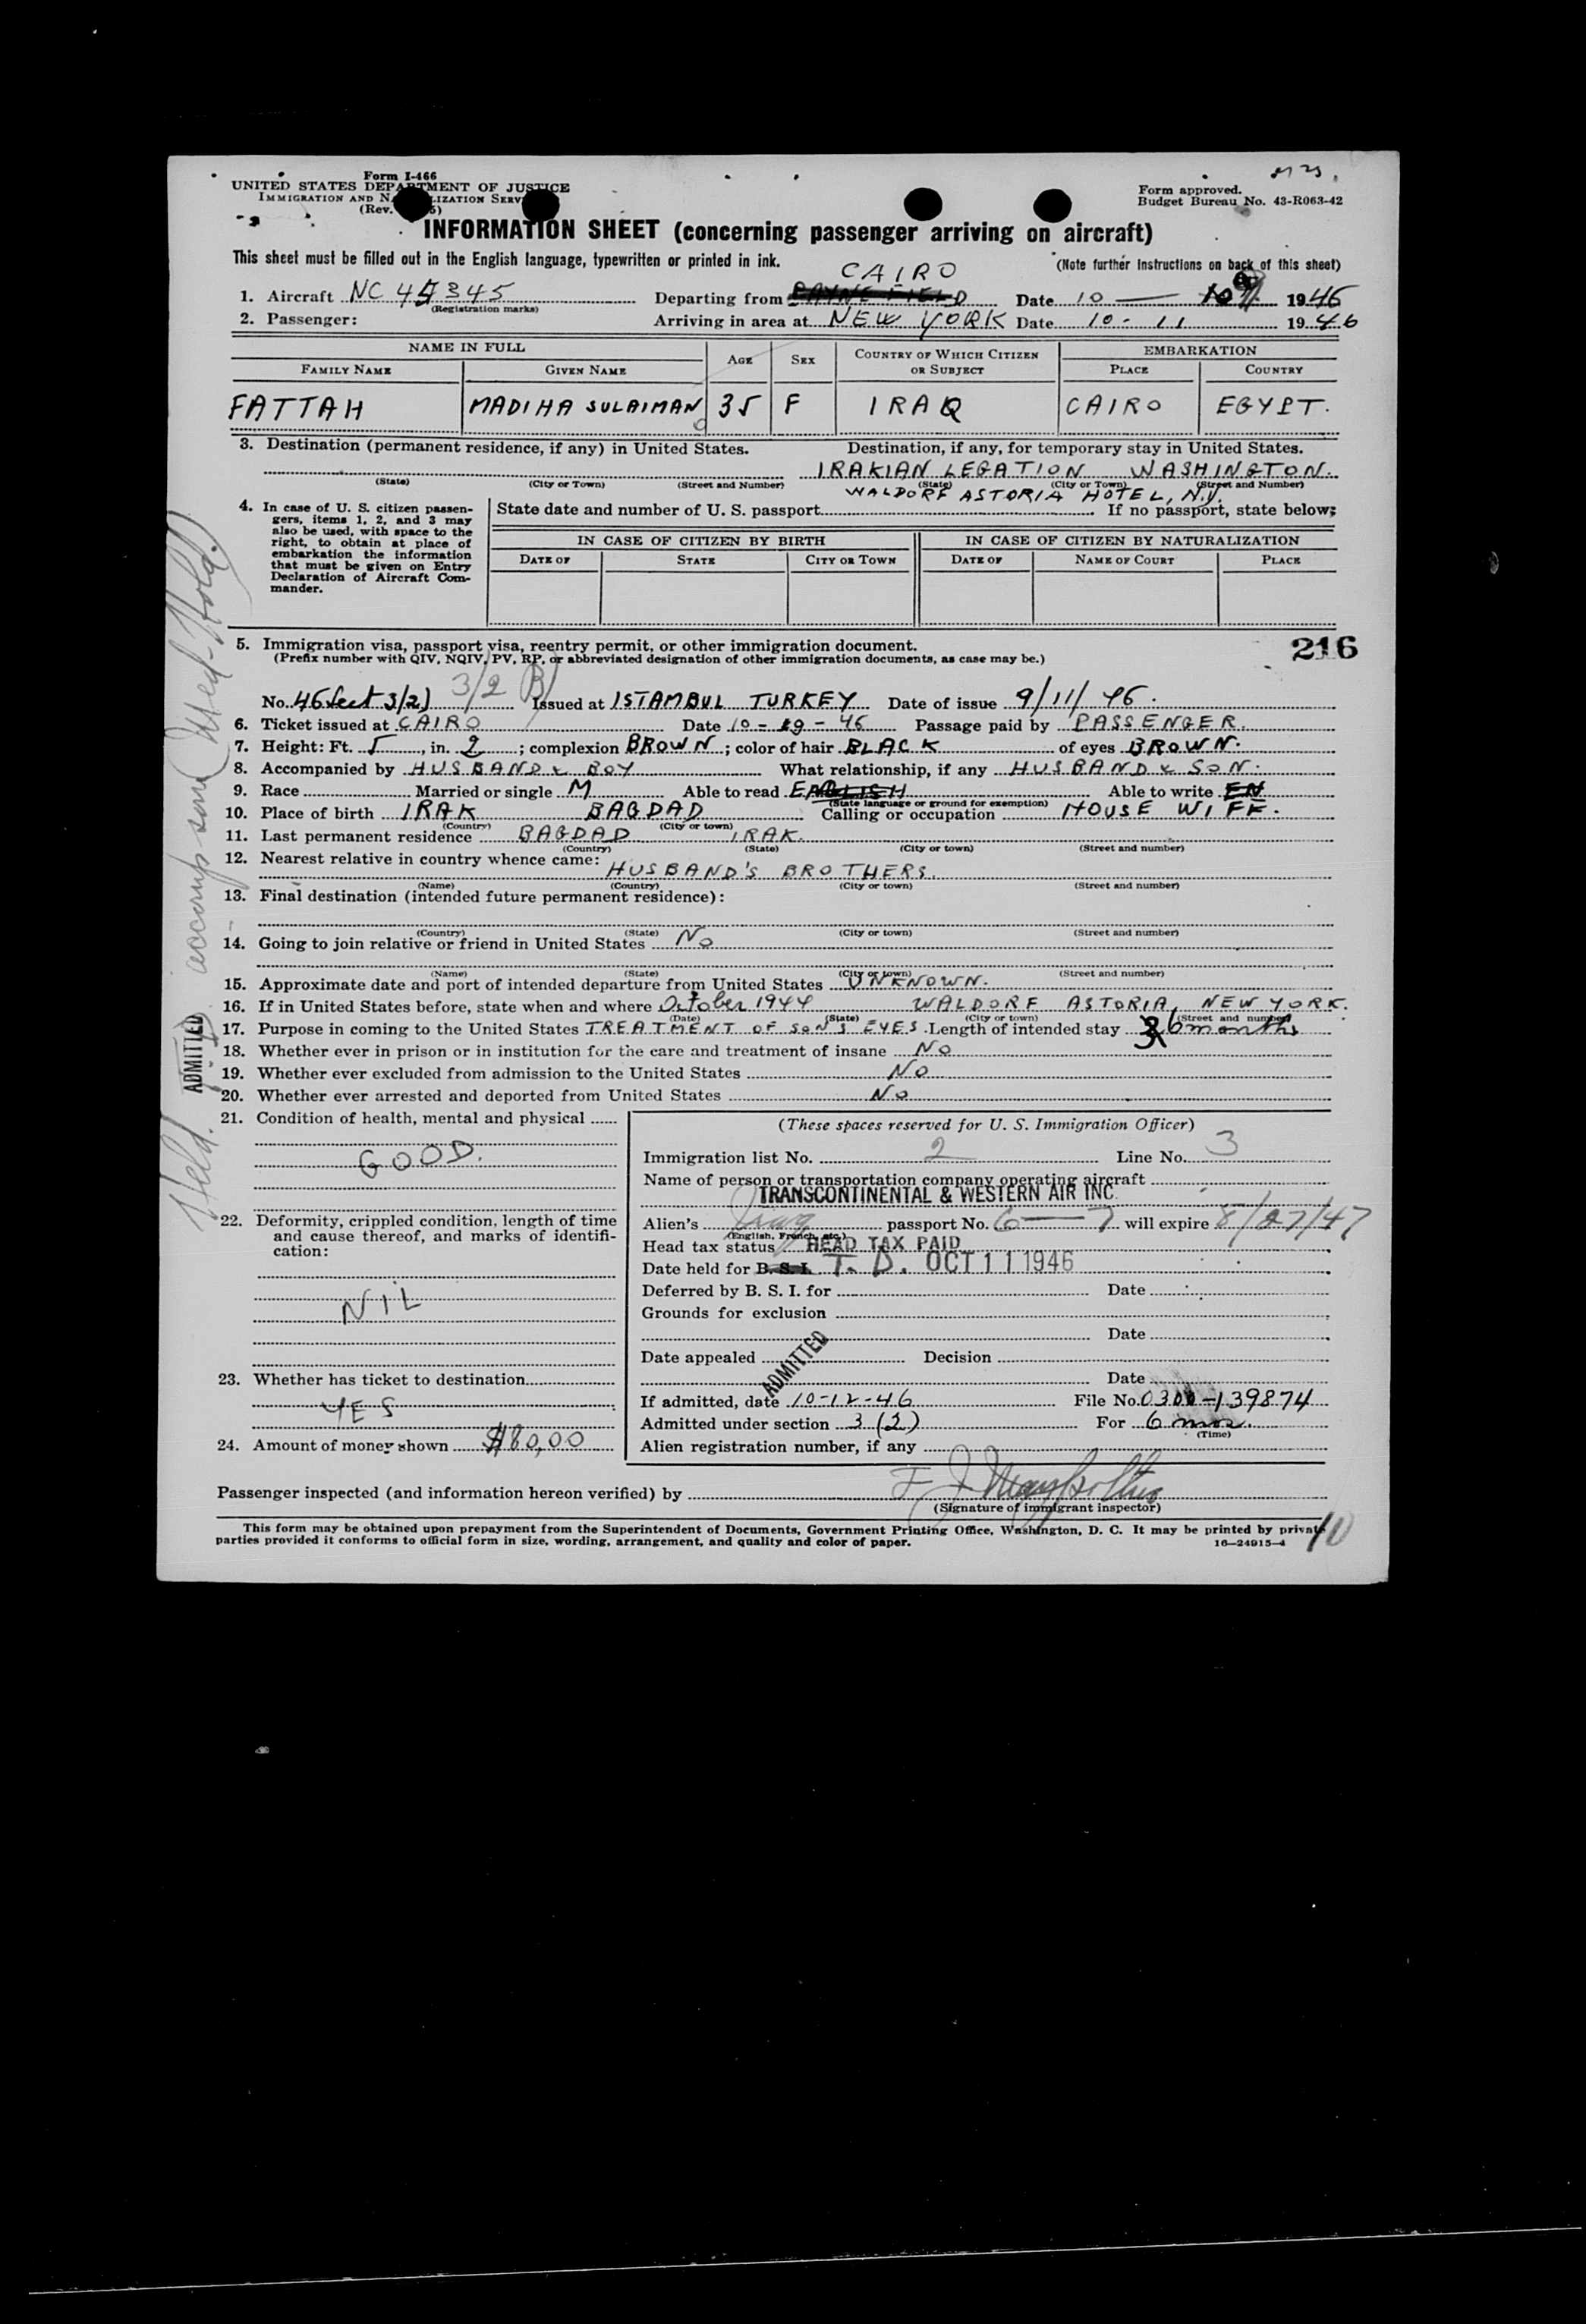 Form I-466
UNITED STATES DEPARTMENT OF JUSTICE
IMMIGRATION AND NATURALIZATION SERVICE
(Rev.
Form approved.
Budget Bureau No. 43-R063-42
INFORMATION SHEET (concerning passenger arriving on aircraft)
This sheet must be filled out in the English language, typewritten or printed in ink.
(Note further instructions on back of this sheet)
CAIRO
1. Aircraft NC 45345 Departing from Date 10 — 9 1946
(Registration marks)
2. Passenger: Arriving in area at NEW YORK Date 10 - 11 1946
NAME IN FULL AGE SEX COUNTRY OF WHICH CITIZEN OR SUBJECT EMBARKATION
FAMILY NAME GIVEN NAME PLACE COUNTRY
FATTAH MADIHA SULAIMAN 35 F IRAQ CAIRO EGYPT.
3. Destination (permanent residence, if any) in United States. Destination, if any, for temporary stay in United States.
IRAKIAN LEGATION WASHINGTON.
(State) (City or Town) (Street and Number) (State) (City or Town) (Street and Number)
WALDORF ASTORIA HOTEL, N.Y.
4. In case of U. S. citizen passengers, items 1, 2, and 3 may also be used, with space to the right, to obtain at place of embarkation the information that must be given on Entry Declaration of Aircraft Commander.
State date and number of U. S. passport If no passport, state below:
IN CASE OF CITIZEN BY BIRTH IN CASE OF CITIZEN BY NATURALIZATION
DATE OF STATE CITY OR TOWN DATE OF NAME OF COURT PLACE
5. Immigration visa, passport visa, reentry permit, or other immigration document.
(Prefix number with QIV, NQIV, PV, RP, or abbreviated designation of other immigration documents, as case may be.)
216
3/2 B
No. 46 Sect 3/2) Issued at ISTAMBUL TURKEY Date of issue 9/11/46.
6. Ticket issued at CAIRO Date 10 - 9 - 46 Passage paid by PASSENGER.
7. Height: Ft. 5, in. 2; complexion BROWN; color of hair BLACK of eyes BROWN.
8. Accompanied by HUSBAND & BOY What relationship, if any HUSBAND & SON.
9. Race Married or single M Able to read ENGLISH Able to write EN
(State language or ground for exemption)
10. Place of birth IRAK BAGDAD Calling or occupation HOUSE WIFE.
(Country) (City or town)
11. Last permanent residence BAGDAD IRAK.
(Country) (State) (City or town) (Street and number)
12. Nearest relative in country whence came: HUSBAND'S BROTHERS.
(Name) (Country) (City or town) (Street and number)
13. Final destination (intended future permanent residence):
(Country) (State) (City or town) (Street and number)
14. Going to join relative or friend in United States No
(Name) (State) (City or town) (Street and number)
15. Approximate date and port of intended departure from United States UNKNOWN.
16. If in United States before, state when and where October 1944 WALDORF ASTORIA, NEW YORK.
(Date) (State) (City or town) (Street and number)
17. Purpose in coming to the United States TREATMENT OF SON'S EYES. Length of intended stay 6 months
18. Whether ever in prison or in institution for the care and treatment of insane No
19. Whether ever excluded from admission to the United States No
20. Whether ever arrested and deported from United States No
21. Condition of health, mental and physical
GOOD.
22. Deformity, crippled condition, length of time and cause thereof, and marks of identification:
NIL
23. Whether has ticket to destination
YES
24. Amount of money shown $80,00
(These spaces reserved for U. S. Immigration Officer)
Immigration list No. 2 Line No. 3
Name of person or transportation company operating aircraft
TRANSCONTINENTAL & WESTERN AIR INC.
Alien's Iraq passport No. 6—7 will expire 8/27/47
(English, French, etc.)
Head tax status HEAD TAX PAID
Date held for B. S. I. T. D. OCT 11 1946
Deferred by B. S. I. for Date
Grounds for exclusion
Date
Date appealed Decision
ADMITTED
Date
If admitted, date 10-12-46 File No. 0300-139874
Admitted under section 3 (2) For 6 mos.
(Time)
Alien registration number, if any
Passenger inspected (and information hereon verified) by
(Signature of immigrant inspector)
This form may be obtained upon prepayment from the Superintendent of Documents, Government Printing Office, Washington, D. C. It may be printed by private
parties provided it conforms to official form in size, wording, arrangement, and quality and color of paper. 16—24915-4
10
Held. accomp son (Med-Hold.)
ADMITTED